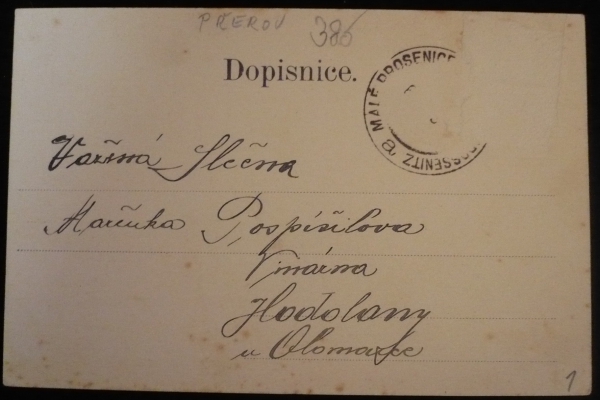 PŘEROV 386
Dopisnice.
MALÉ PROSENICE
OSSENITZ a
Vážená Slečna
Mařenka Pospíšilova
Vinárna
Hodolany
u Olomouce
1